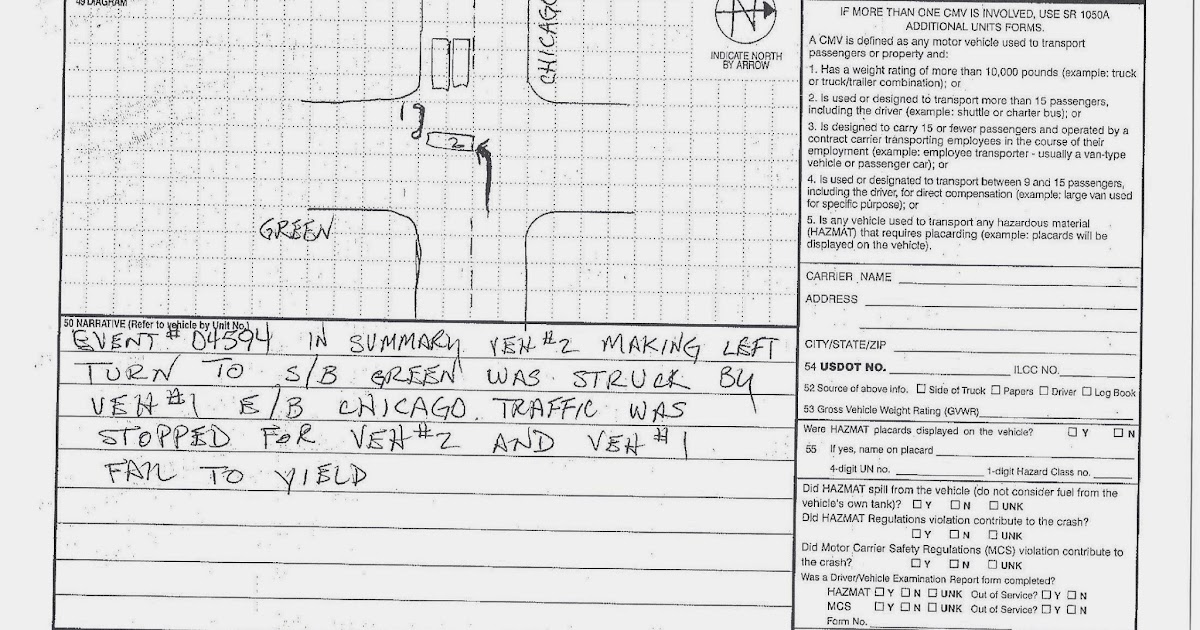 49 DIAGRAM
CHICAGO
N
INDICATE NORTH
BY ARROW
1
2
GREEN
50 NARRATIVE (Refer to vehicle by Unit No.)
EVENT # 04594 IN SUMMARY VEH #2 MAKING LEFT
TURN TO S/B GREEN WAS STRUCK BY
VEH #1 E/B CHICAGO. TRAFFIC WAS
STOPPED FOR VEH #2 AND VEH #1
FAIL TO YIELD
IF MORE THAN ONE CMV IS INVOLVED, USE SR 1050A
ADDITIONAL UNITS FORMS.
A CMV is defined as any motor vehicle used to transport
passengers or property and:
1. Has a weight rating of more than 10,000 pounds (example: truck
or truck/trailer combination); or
2. Is used or designed to transport more than 15 passengers,
including the driver (example: shuttle or charter bus); or
3. Is designed to carry 15 or fewer passengers and operated by a
contract carrier transporting employees in the course of their
employment (example: employee transporter - usually a van-type
vehicle or passenger car); or
4. Is used or designated to transport between 9 and 15 passengers,
including the driver, for direct compensation (example: large van used
for specific purpose); or
5. Is any vehicle used to transport any hazardous material
(HAZMAT) that requires placarding (example: placards will be
displayed on the vehicle).
CARRIER NAME
ADDRESS
CITY/STATE/ZIP
54 USDOT NO. ILCC NO.
52 Source of above info. ☐ Side of Truck ☐ Papers ☐ Driver ☐ Log Book
53 Gross Vehicle Weight Rating (GVWR)
Were HAZMAT placards displayed on the vehicle? ☐ Y ☐ N
55 If yes, name on placard
4-digit UN no. 1-digit Hazard Class no.
Did HAZMAT spill from the vehicle (do not consider fuel from the
vehicle's own tank)? ☐ Y ☐ N ☐ UNK
Did HAZMAT Regulations violation contribute to the crash?
☐ Y ☐ N ☐ UNK
Did Motor Carrier Safety Regulations (MCS) violation contribute to
the crash? ☐ Y ☐ N ☐ UNK
Was a Driver/Vehicle Examination Report form completed?
HAZMAT ☐ Y ☐ N ☐ UNK Out of Service? ☐ Y ☐ N
MCS ☐ Y ☐ N ☐ UNK Out of Service? ☐ Y ☐ N
Form No.